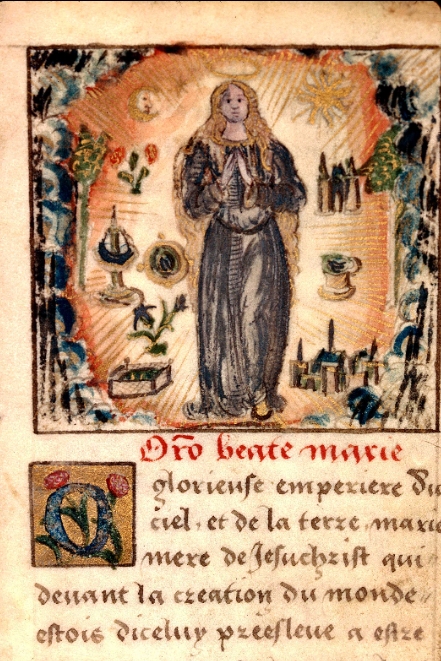 Orõ beate marie
O glorieuse emperiere du
ciel, et de la terre, marie
mere de Jesuchrist qui
deuant la creation du monde
estois diceluy preesleue a estre